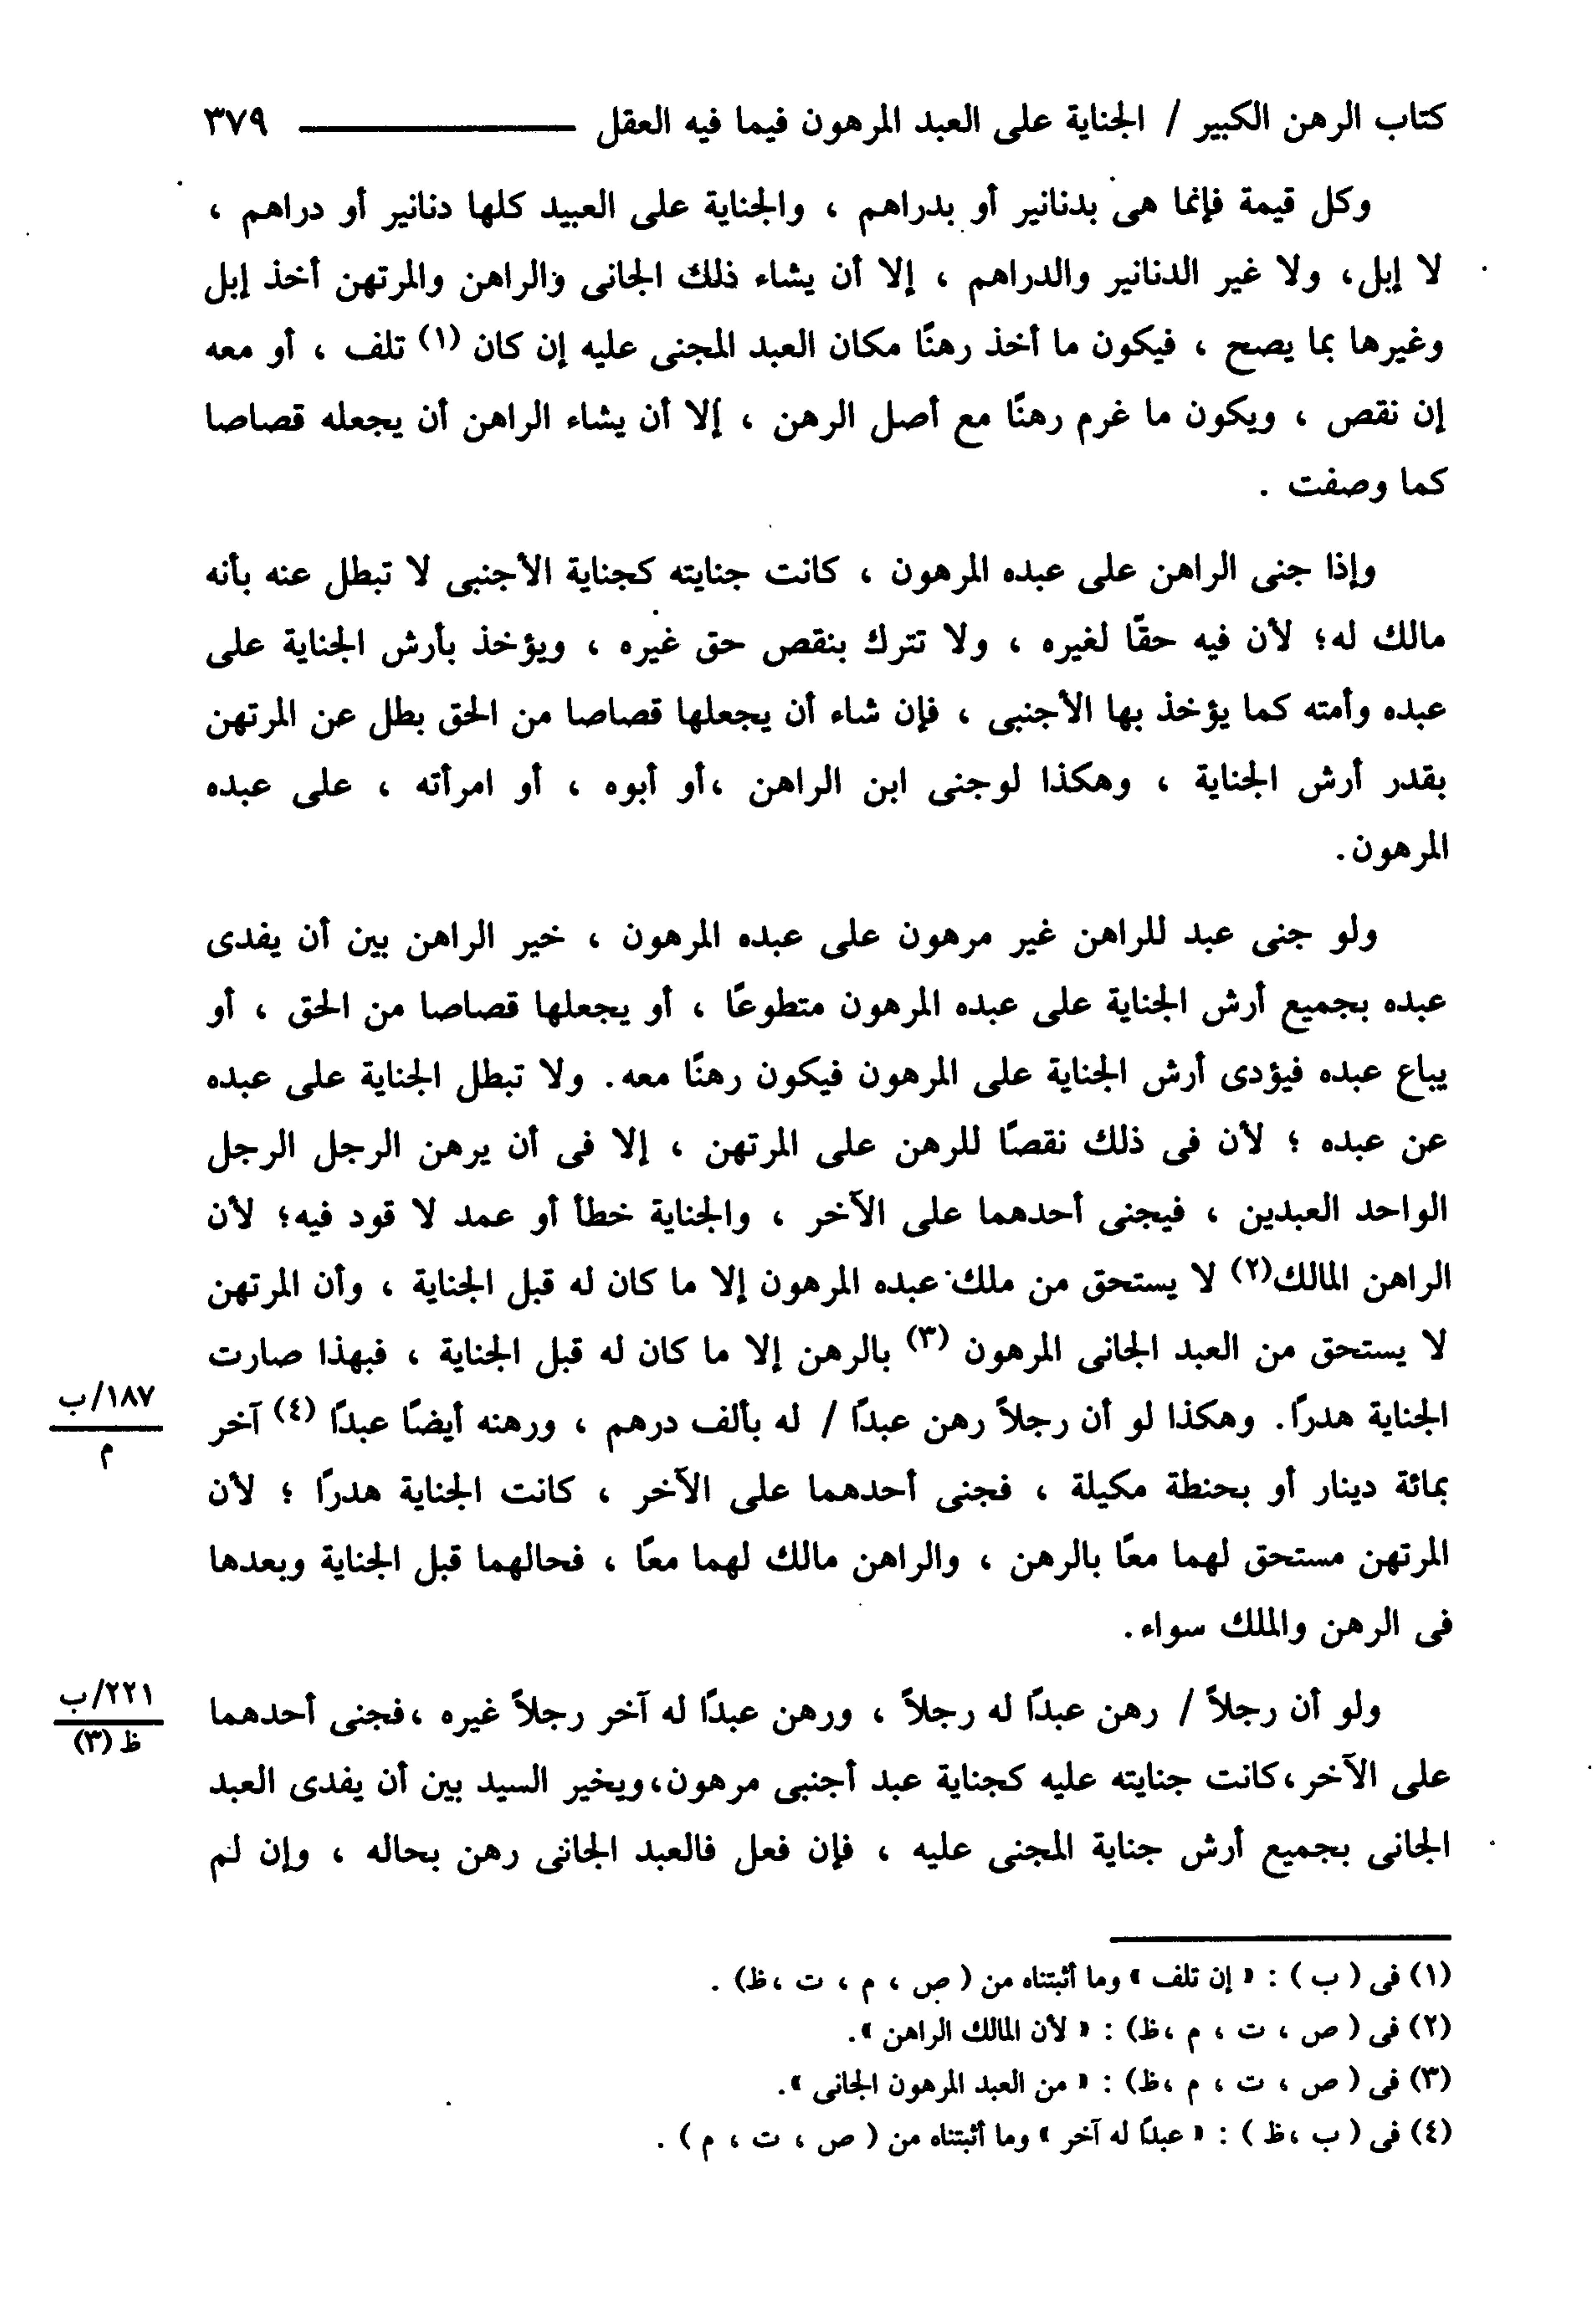 كتاب الرهن الكبير / الجناية على العبد المرهون فيما فيه العقل ــــــــــــ ٣٧٩
وكل قيمة فإنما هى بدنانير أو بدراهم ، والجناية على العبيد كلها دنانير أو دراهم ،
لا إبل، ولا غير الدنانير والدراهم ، إلا أن يشاء ذلك الجانى والراهن والمرتهن أخذ إبل
وغيرها بما يصح ، فيكون ما أخذ رهنًا مكان العبد المجنى عليه إن كان (١) تلف ، أو معه
إن نقص ، ويكون ما غرم رهنًا مع أصل الرهن ، إلا أن يشاء الراهن أن يجعله قصاصا
كما وصفت .
وإذا جنى الراهن على عبده المرهون ، كانت جنايته كجناية الأجنبى لا تبطل عنه بأنه
مالك له؛ لأن فيه حقًا لغيره ، ولا تترك بنقص حق غيره ، ويؤخذ بأرش الجناية على
عبده وأمته كما يؤخذ بها الأجنبى ، فإن شاء أن يجعلها قصاصا من الحق بطل عن المرتهن
بقدر أرش الجناية ، وهكذا لوجنى ابن الراهن ،أو أبوه ، أو امرأته ، على عبده
المرهون.
ولو جنى عبد للراهن غير مرهون على عبده المرهون ، خير الراهن بين أن يفدى
عبده بجميع أرش الجناية على عبده المرهون متطوعًا ، أو يجعلها قصاصا من الحق ، أو
يباع عبده فيؤدى أرش الجناية على المرهون فيكون رهنًا معه. ولا تبطل الجناية على عبده
عن عبده ؛ لأن فى ذلك نقصًا للرهن على المرتهن ، إلا فى أن يرهن الرجل الرجل
الواحد العبدين ، فيجنى أحدهما على الآخر ، والجناية خطأ أو عمد لا قود فيه؛ لأن
الراهن المالك(٢) لا يستحق من ملك عبده المرهون إلا ما كان له قبل الجناية ، وأن المرتهن
لا يستحق من العبد الجانى المرهون (٣) بالرهن إلا ما كان له قبل الجناية ، فبهذا صارت
الجناية هدرًا. وهكذا لو أن رجلاً رهن عبدًا / له بألف درهم ، ورهنه أيضًا عبدًا (٤) آخر
١٨٧/ب
م
بمائة دينار أو بحنطة مكيلة ، فجنى أحدهما على الآخر ، كانت الجناية هدرًا ؛ لأن
المرتهن مستحق لهما معًا بالرهن ، والراهن مالك لهما معًا ، فحالهما قبل الجناية وبعدها
فى الرهن والملك سواء.
ولو أن رجلاً / رهن عبدًا له رجلاً ، ورهن عبدًا له آخر رجلاً غيره ،فجنى أحدهما
٢٢١/ب
ظ (٣)
على الآخر،كانت جنايته عليه كجناية عبد أجنبى مرهون،ويخير السيد بين أن يفدى العبد
الجانى بجميع أرش جناية المجنى عليه ، فإن فعل فالعبد الجانى رهن بحاله ، وإن لم
(١) فى ( ب ) : « إن تلف » وما أثبتناه من ( ص ، م ، ت ،ظ) .
(٢) فى ( ص ، ت ، م ،ظ) : « لأن المالك الراهن ».
(٣) فى ( ص ، ت ، م ،ظ) : « من العبد المرهون الجانى ».
(٤) فى ( ب ،ظ ) : « عبدًا له آخر » وما أثبتناه من ( ص ، ت ، م ) .